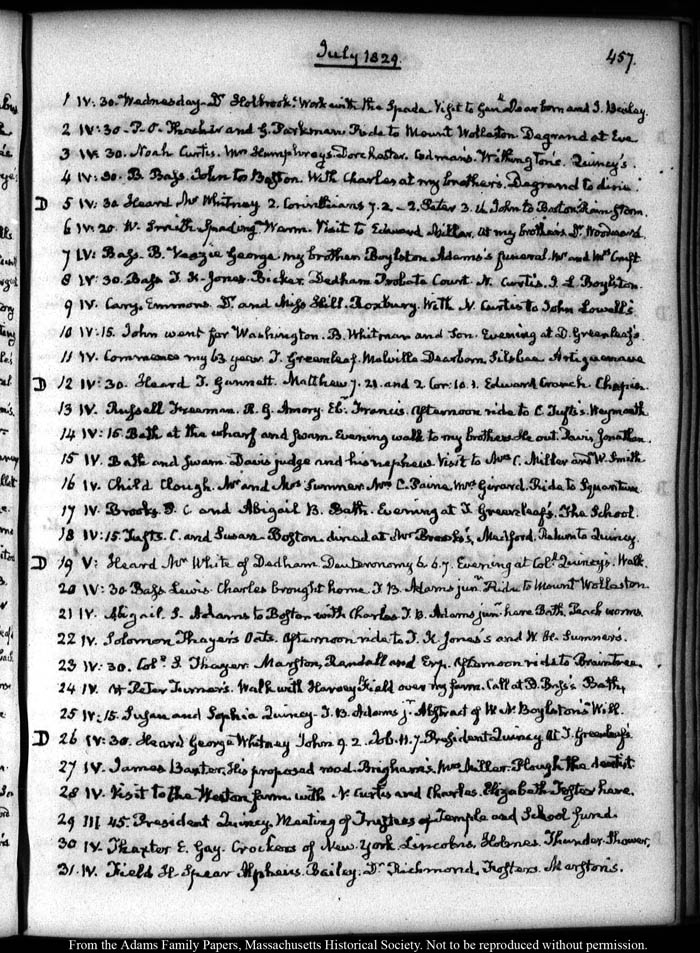 July 1829.
457.
1 IV: 30. Wednesday. Dr Holbrook. Work with the Spade. Visit to Genl Dearborn and J. Bailey.
2 IV: 30. P. O. Thacher and G. Parkman. Ride to Mount Wollaston. Degrand at Eve
3 IV: 30. Noah Curtis. Mrs Humphreys. Dorchester. Codman's. Withington's. Quincy's.
4 IV: 30. B. Bass. John to Boston. With Charles at my brother's. Degrand to dine.
D 5 IV: 30. Heard Mr Whitney 2. Corinthians 7. 2. - 2. Peter 3. John to Boston. Rain Storm.
6 IV: 20. W. Smith Spading. Warm. Visit to Edward Miller. at my brother's Dr Woodward.
7 IV: Bass. B. Veazie George my brother Boylston Adams's funeral. Mr and Mrs Cruft
8 IV: 30. Bass T. K. Jones. Bicker. Dedham Probate Court. N. Curtis. Boylston.
9 IV. Cary. Emmons. Dr and Miss Hill. Roxbury. With N. Curtis to John Lowell's
10 IV: 15. John went for Washington. B. Whitman and Son. Evening at D. Greenleaf's.
11 IV. Commence my 63 year. T. Greenleaf. Melville Dearborn Silsbee Artiguenave
D 12 IV: 30. Heard T. Gannett. Matthew 7. 21. and 2 Cor: 10. 1. Edward Cranch Chapin.
13 IV. Russell Freeman. R. G. Amory. Ebr Francis. Afternoon ride to C. Tufts's Weymouth
14 IV: 15 Bath at the wharf and swam. Evening walk to my brother's. He out. Davis Jonathan.
15 IV. Bath and Swam. Davis judge and his nephew Visit to Mrs C. Miller and W. Smith
16 IV. Child Clough. Mr and Mrs Sumner Mrs C. Paine Mrs Girard. Ride to Squantum
17 IV. Brooks. P. C. and Abigail B. Bath. Evening at T. Greenleaf's. The School.
18 IV: 15. Tufts. C. and Susan. Boston. dined at Mr Brooks's, Medford. Return to Quincy.
D 19 V: Heard Mr White of Dedham. Deuteronomy 6. 6. 7. Evening at Coll Quincy's. Walk.
20 IV: 30 Bass Lewis. Charles brought home J. B. Adams junr Ride to Mount Wollaston
21 IV. Abigail S. Adams to Boston with Charles. J. B. Adams junr here Bath. Peach worms.
22 IV. Solomon Thayer's Oats. Afternoon ride to T. K Jones's and W. H. Sumner's.
23 IV: 30. Coll S Thayer. Marston, Randall and Afternoon ride to Braintree.
24 IV. at Peter Turner's. Walk with Harvey Field over my farm. Call at B. Bass's Bath.
25 IV: 15. Susan and Sophia Quincy. J. B. Adams jr Abstract of W. N. Boylston's Will.
D 26 IV: 30. Heard George Whitney John 9. 2. Job. 11. 7. President Quincy at T. Greenleaf's
27 IV. James Baxter. His proposed road. Brigham's. Mrs Miller. Plough the dentist
28 IV. Visit to the Weston farm with N. Curtis and Charles. Elizabeth Foster here.
29 III 45. President Quincy. Meeting of Trustees of Temple and School fund.
30 IV. Thaxter E. Gay. Crockers of New York Lincolns. Holmes. Thunder Shower.
31. IV. Field H. Spear Alpheus. Bailey. Dr Richmond. Fosters. Marston's.
From the Adams Family Papers, Massachusetts Historical Society. Not to be reproduced without permission.